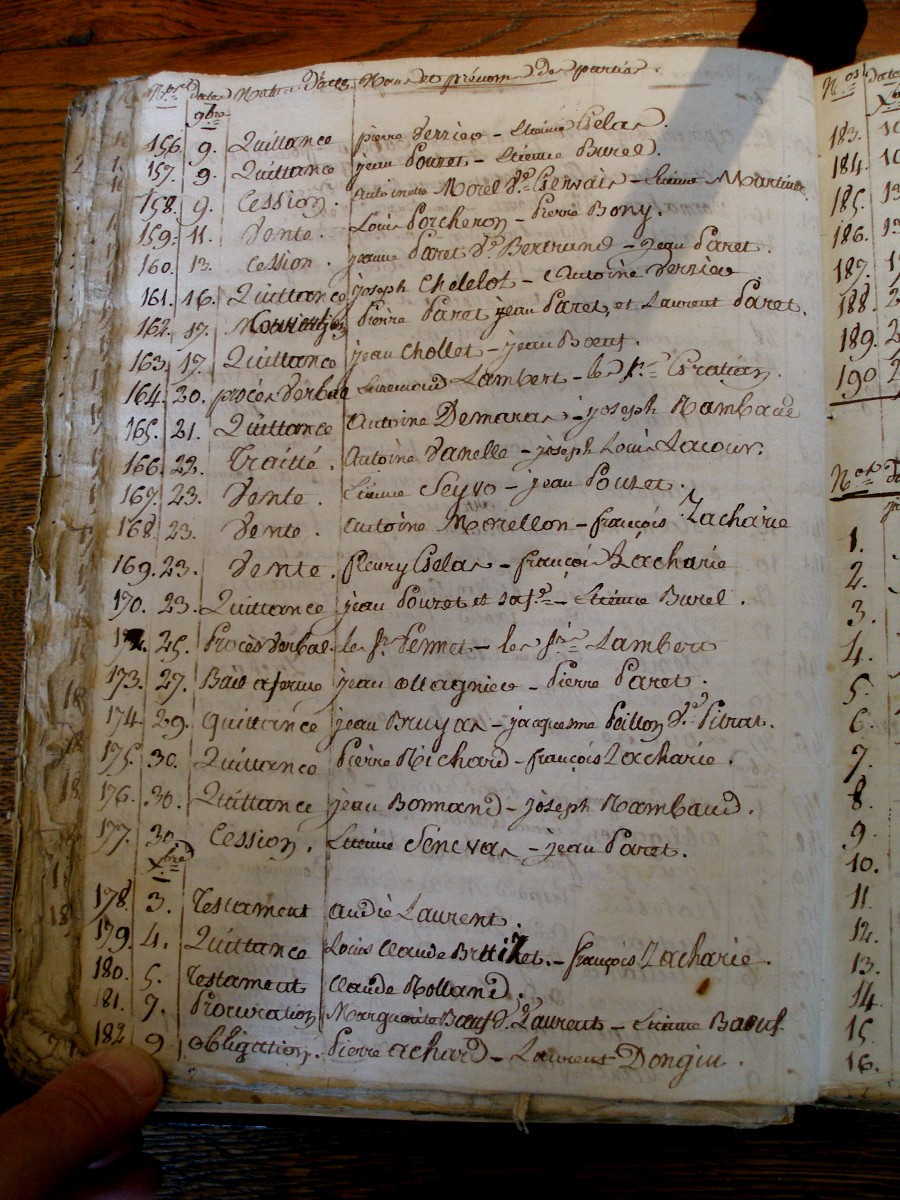 N.os dates Nature d'actes Noms et prénoms des parties
9bre
156. 9. Quittance pierre Verrier - Etienne Gelas.
157. 9. Quittance jean Pouzet - Etienne Burel.
158. 9. Cession. Antoinette Morel Ve Gervais - Etienne Martinier
159. 11. Vente. Louis Porcheron - Pierre Bony.
160. 13. Cession. jeanne Paret Ve Bertrand - jean Paret.
161. 16. Quittance joseph Chelelot - Antoine Verrier
162. 17. Pierre Paret jean Paret, et Laurent Paret.
163. 17. Quittance jean Chollet - jean Boeuf.
164. 20. procès Verbal Lambert - le Sr Gratian.
165. 21. Quittance Antoine Demaras - joseph Rambaud
166. 22. Traitté. Antoine Vanelle - joseph Louis Lacour.
167. 23. Vente. Etienne Seyvo - jean Pouzet.
168. 23. Vente. Antoine Morellon - françois Zacharie
169. 23. Vente. fleury Gelas - françois Zacharie
170. 23. Quittance jean Pouzet et sa fe - Etienne Burel.
25. Procès Verbal. le Sr - les Srs Lambert
173. 27. Bail a ferme jean Magnieu - Pierre Paret.
174. 29. quittance jean Bruyas - jacqueme Peillon Ve Pitrat.
175. 30. Quittance Pierre Richard - françois Zacharie.
176. 30. Quittance jean Bomand - joseph Rambaud.
177. 30. Cession. Etienne Senevas - jean Paret.
Xbre
178. 3. Testament andié Laurent.
179. 4. Quittance Louis Claude - françois Zacharie.
180. 5. Testament Claude Rolland.
181. 7. Procuration Marguerite Boeuf Ve Laurent - Etienne Boeuf.
182 9 obligation. Pierre achard - Laurent Dongin.
N.os
183.
184.
185.
186.
187.
188
189.
190
N.os
1.
2.
3.
4.
5.
6.
7.
8.
9.
10.
11.
12.
13.
14.
15.
16.